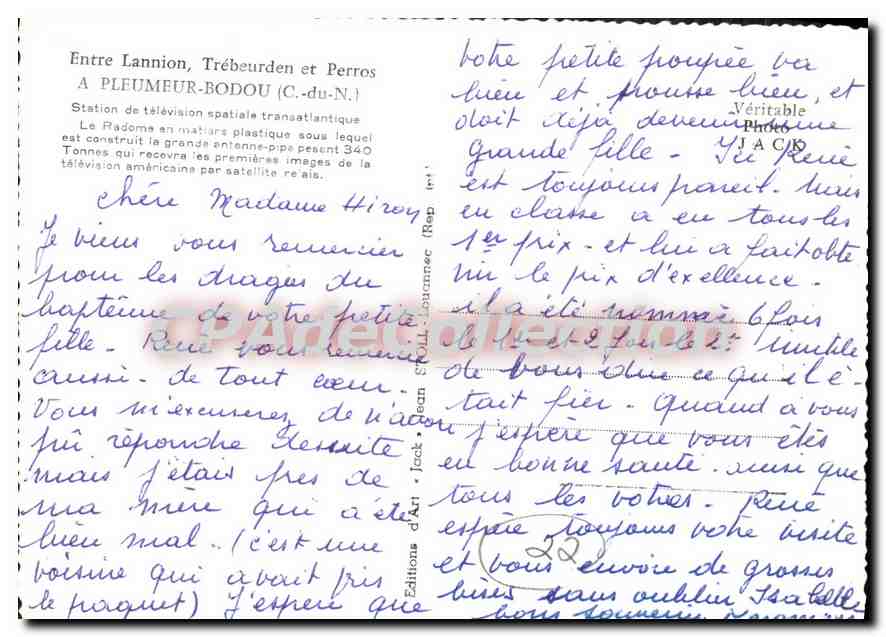 Entre Lannion, Trébeurden et Perros
A PLEUMEUR-BODOU (C.-du-N.)
Station de télévision spatiale transatlantique
Le Radome en matière plastique sous lequel
est construit la grande antenne-pipe pesent 340
Tonnes qui recevra les premières images de la
télévision américaine par satellite relais.
chère Madame Hiroy
Je viens vous remercier
pour les dragés du
baptême de votre petite
fille - René vous remercie
aussi - de tout coeur -
Vous m'excuserez de n'avoir
pû répondre dessuite
mais j'étais près de
ma mère qui a été
bien mal - (c'est une
voisine qui avait pris
le paquet) J'espère que
Editions d'Art - Jack - Jean STOLL - Louannec (Rep. int.)
Véritable
Photo
JACK
votre petite poupée va
bien et pousse bien, et
doit déjà devenir une
grande fille - Ici René
est toujours pareil - Mais
en classe a eu tous les
1er prix - et lui a fait obte
nir le pix d'excellence -
il a été nommé 6 fois
le 1er et 2 fois le 2e Inutile
de vous dire ce qu'il é-
tait fier - Quand à vous
j'espère que vous êtes
en bonne santé - ainsi que
tous les votres - René
espère toujours votre visite
et vous envoie de grosses
bises sans oublier Isabelle
bons souvenirs
22
CPAdeCollection